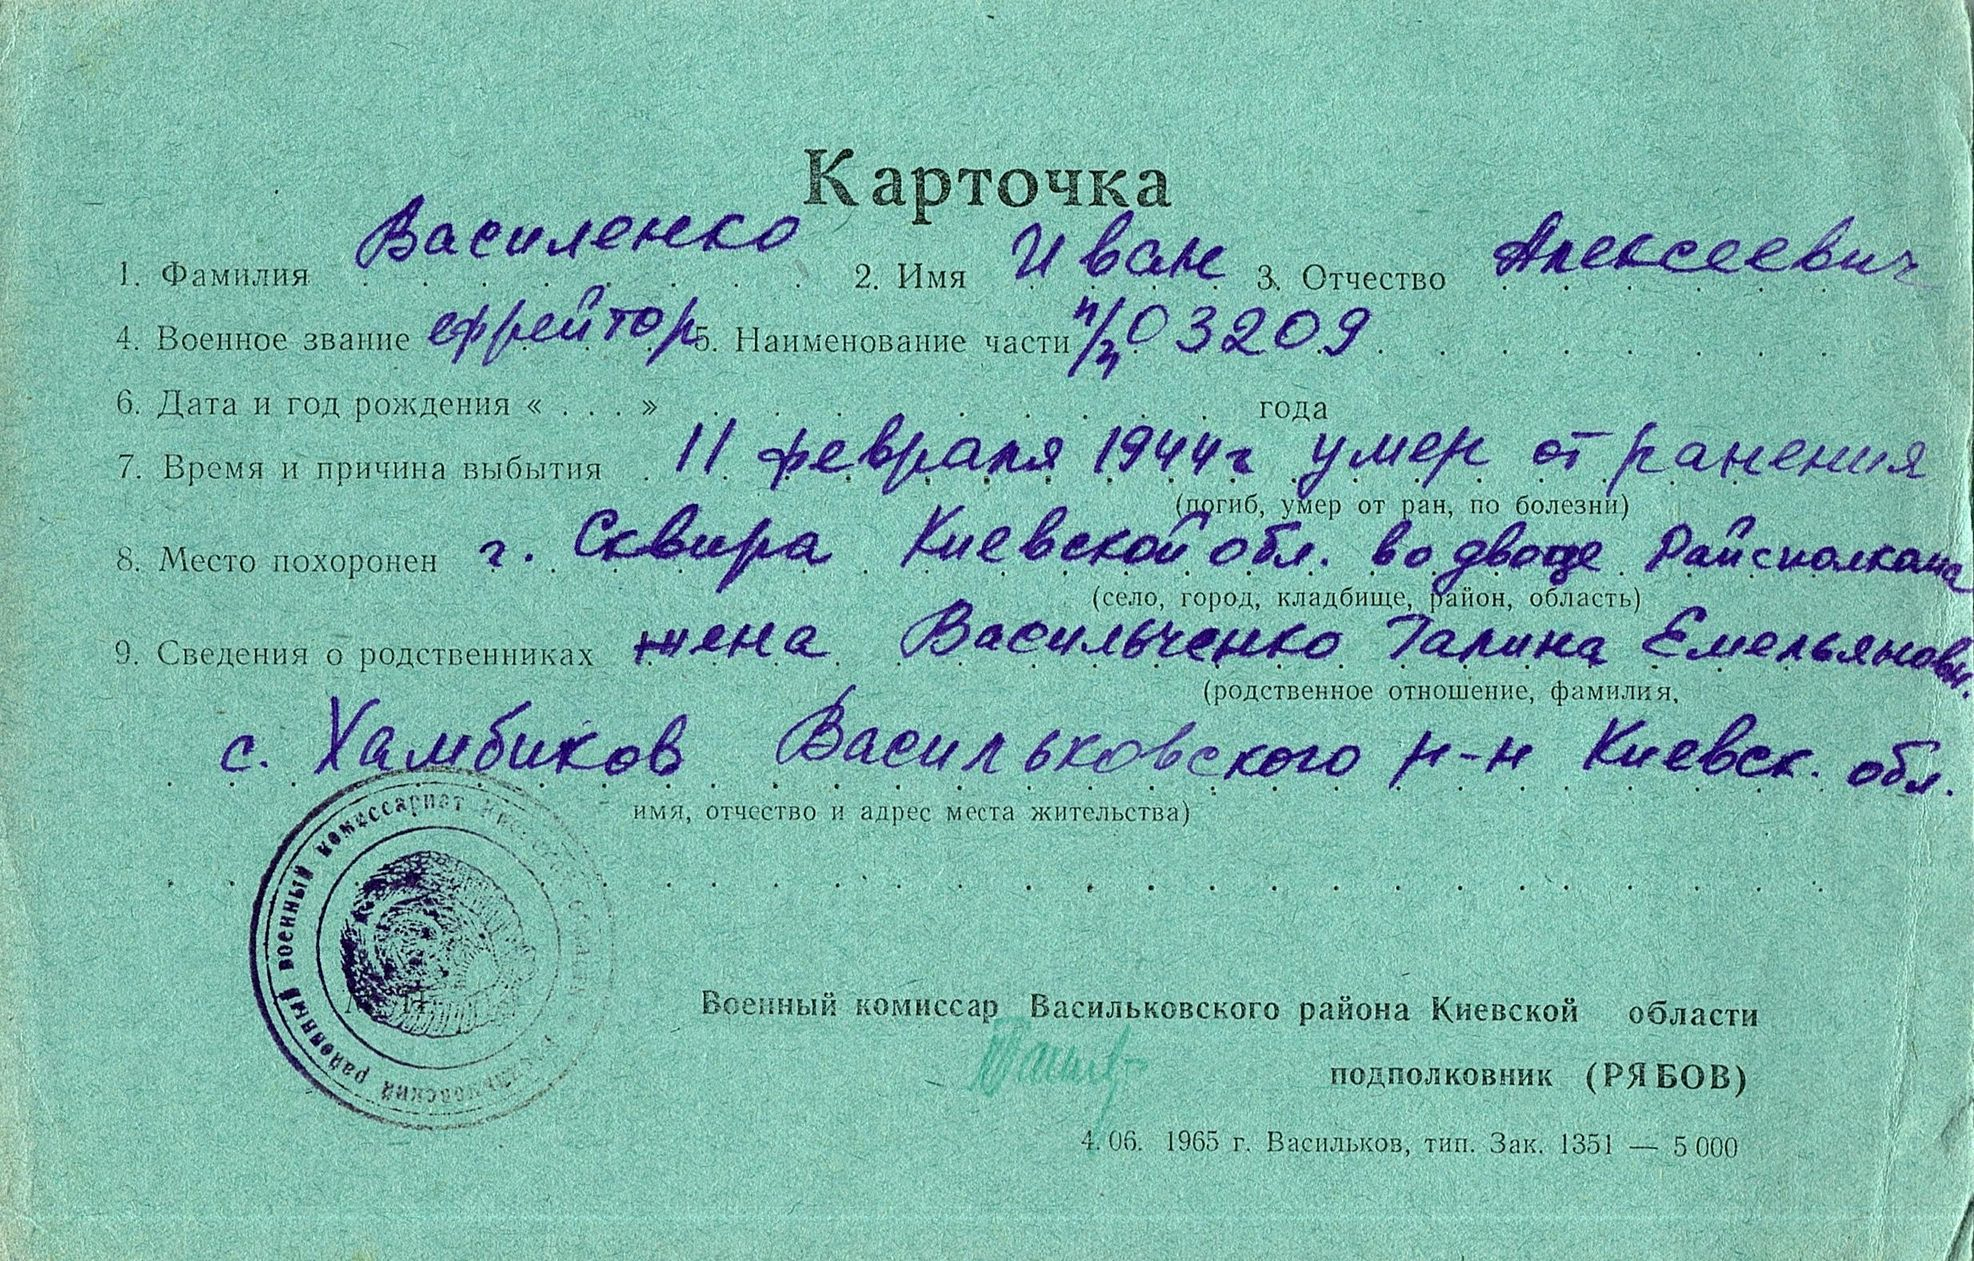 Карточка
1. Фамилия Василенко 2. Имя Иван 3. Отчество Алексеевич
4. Военное звание ефрейтор 5. Наименование части п/п 03209
6. Дата и год рождения « . . . » года
7. Время и причина выбытия 11 февраля 1944 г умер от ранения
(погиб, умер от ран, по болезни)
8. Место похоронен г. Сквира Киевской обл. во дворе
(село, город, кладбище, район, область)
9. Сведения о родственниках жена Васильченко Галина Емельяновн.
(родственное отношение, фамилия,
с. Хамбиков Васильковского р-н Киевск. обл.
имя, отчество и адрес места жительства)
районный военный комиссариат
Военный комиссар Васильковского района Киевской области
подполковник (РЯБОВ)
4.06. 1965 г. Васильков, тип. Зак. 1351 — 5 000